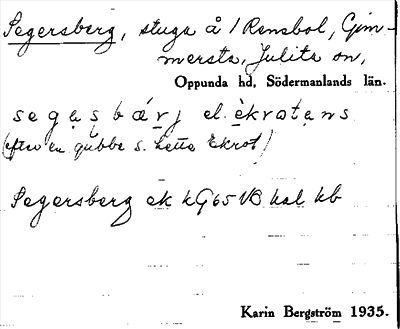 Segersberg, stuga å 1 Rensbol, Gim-
mersta, Julita sn,
Oppunda hd, Södermanlands län.
segasbærj el. èkrotans
(efter en gubbe s. hette Ekrot)
Segersberg ek kG65 VB hal kb
Karin Bergström 1935.